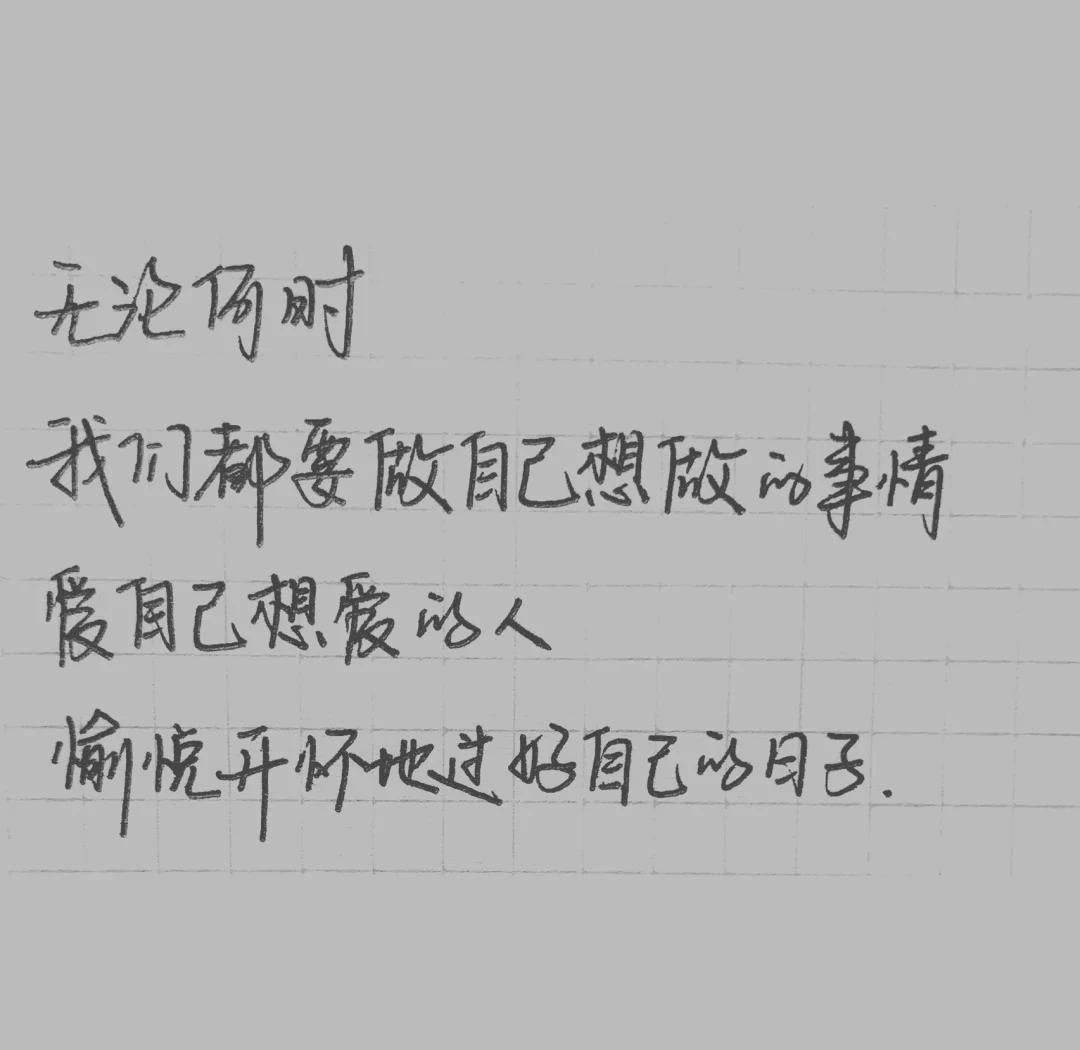 无论何时
我们都要做自己想做的事情
爱自己想爱的人
愉悦开怀地过好自己的日子.